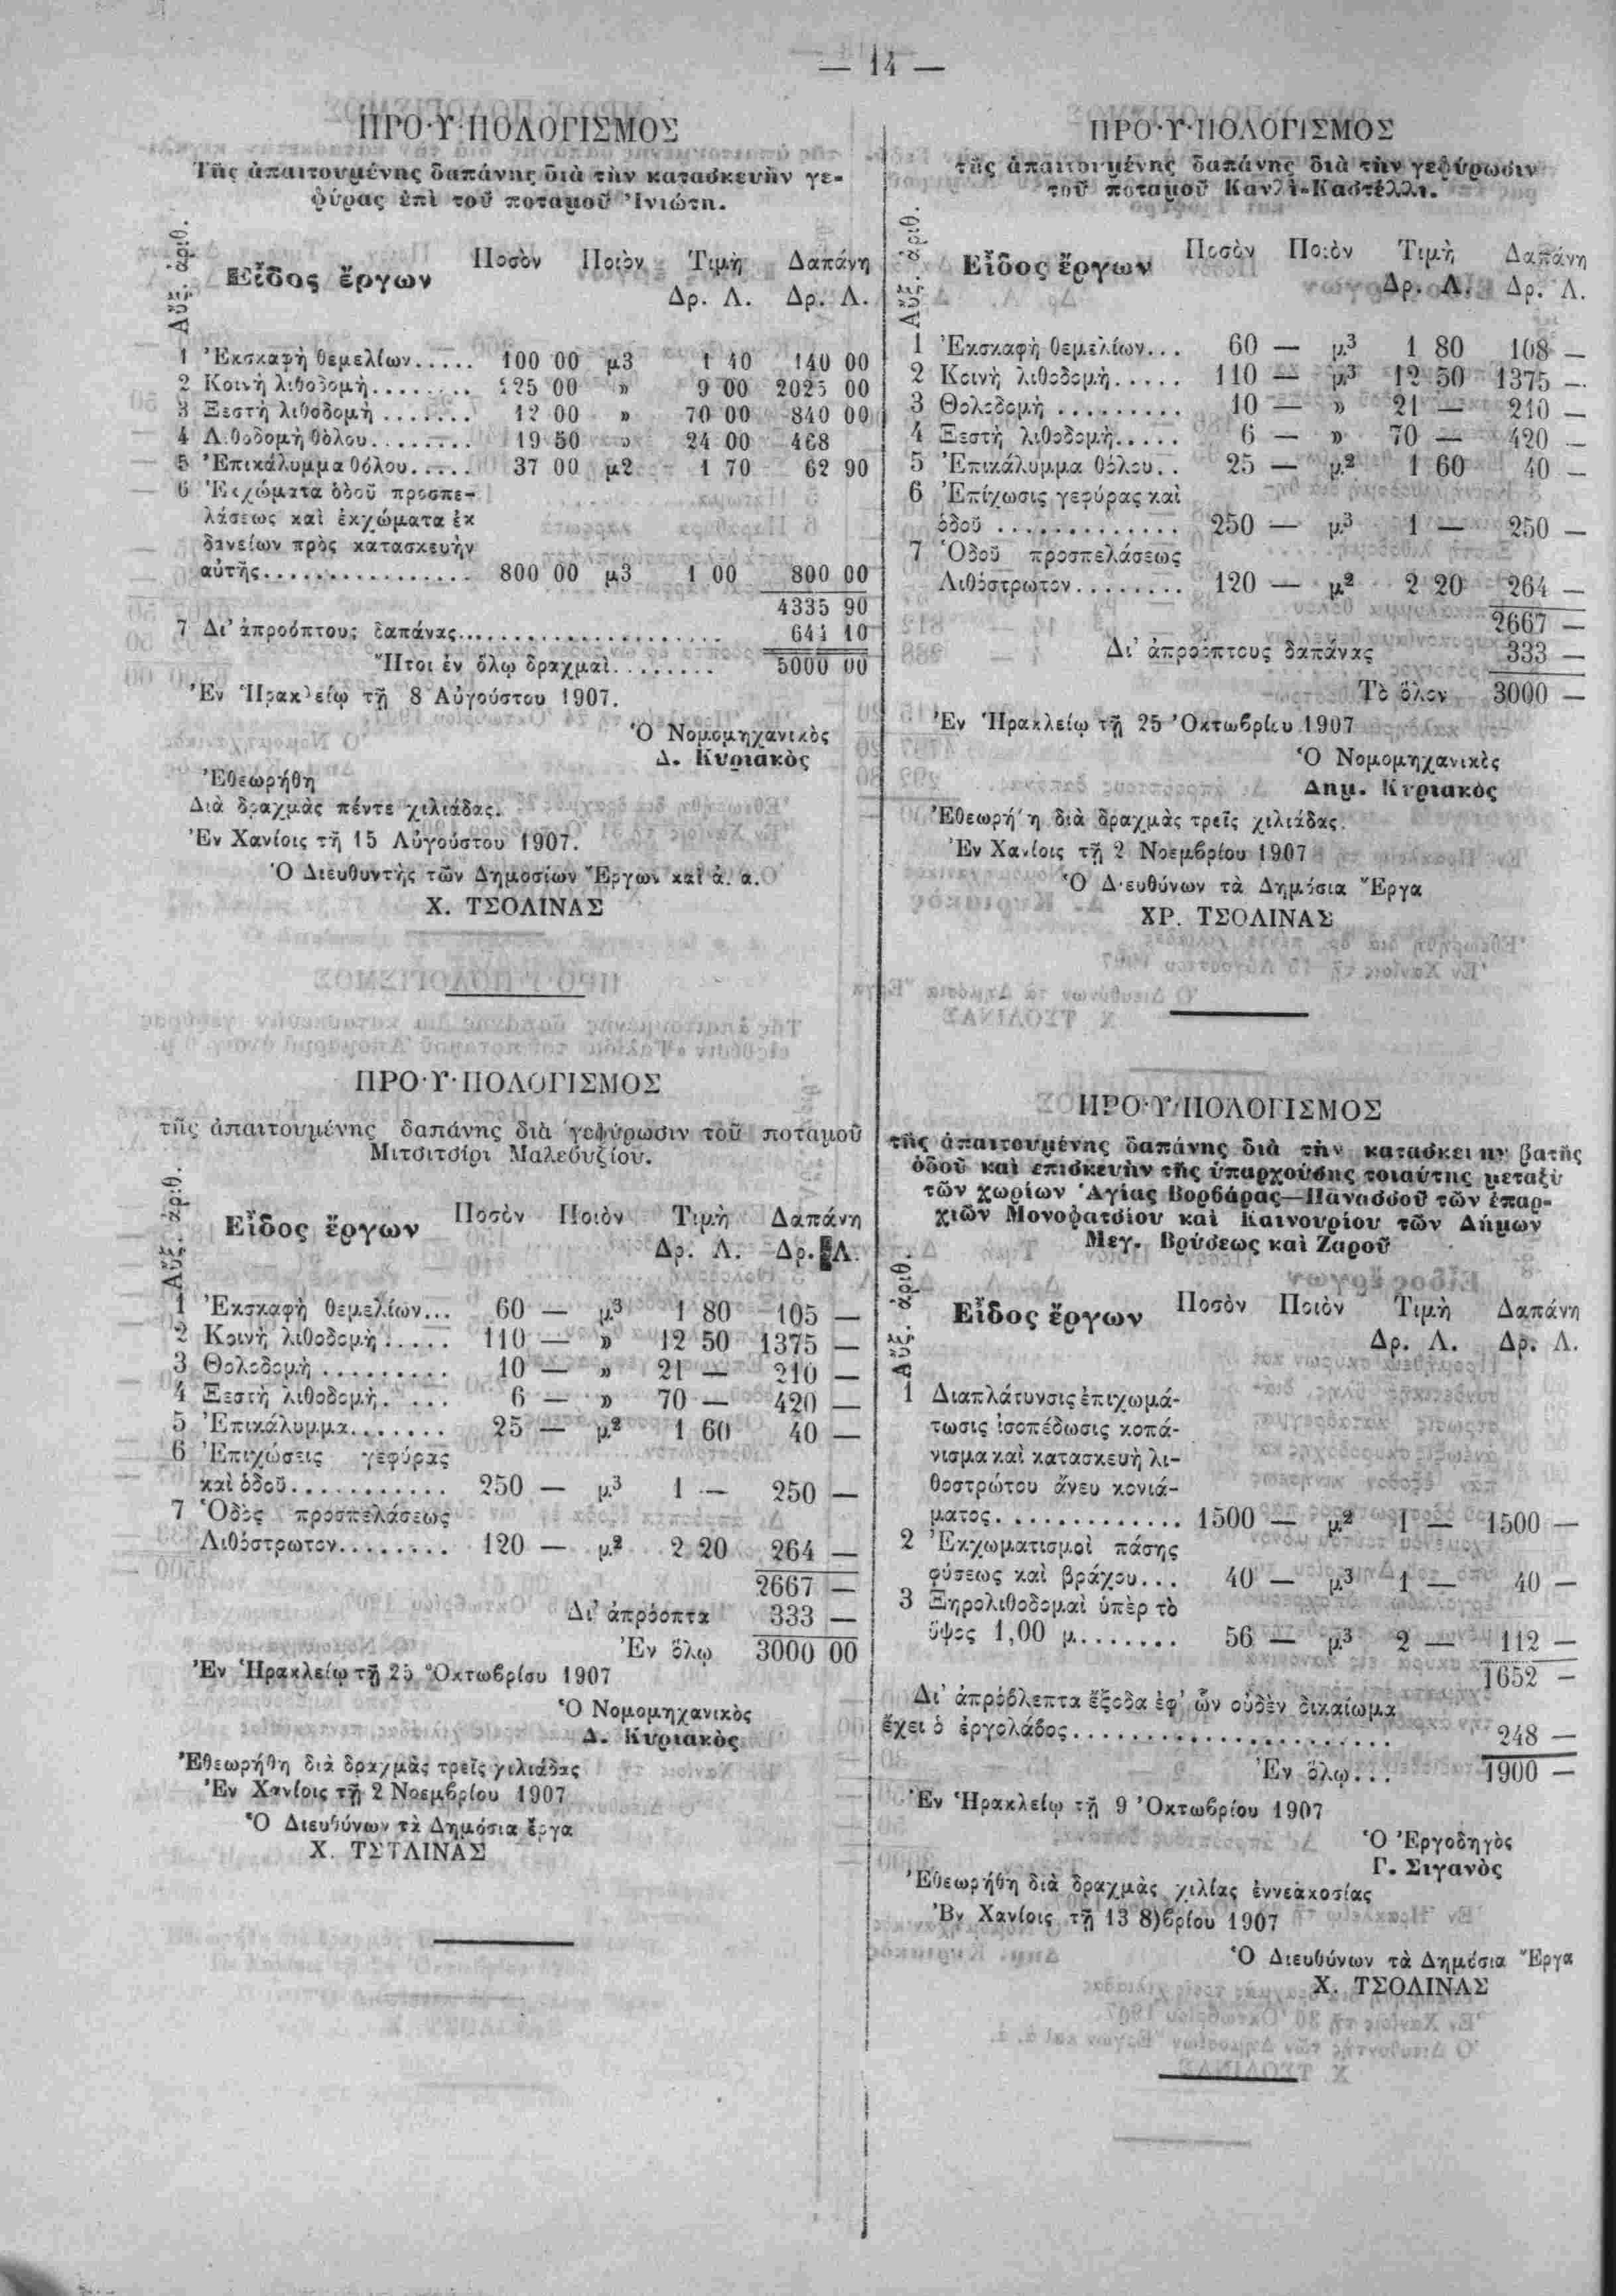 — 14 —
ΠΡΟ·Υ·ΠΟΛΟΓΙΣΜΟΣ
Τῆς ἀπαιτουμένης δαπάνης διὰ τὴν κατασκευὴν γε-
φύρας ἐπὶ τοῦ ποταμοῦ Ἰνιώτη.
Αὔξ. ἀριθ. Εἶδος ἔργων Ποσὸν Ποιὸν Τιμὴ Δαπάνη
Δρ. Λ. Δρ. Λ.
1 Ἐκσκαφὴ θεμελίων..... 100 00 μ3 1 40 140 00
2 Κοινὴ λιθοδομὴ........ 225 00 » 9 00 2025 00
3 Ξεστὴ λιθοδομὴ....... 12 00 » 70 00 840 00
4 Λιθοδομὴ θόλου........ 19 50 » 24 00 468
5 Ἐπικάλυμμα θόλου..... 37 00 μ2 1 70 62 90
6 Ἐκχώματα ὁδοῦ προσπε-
λάσεως καὶ ἐκχώματα ἐκ
δανείων πρὸς κατασκευὴν
αὐτῆς................ 800 00 μ3 1 00 800 00
4335 90
7 Δι’ ἀπροόπτους δαπάνας.................... 664 10
Ἤτοι ἐν ὅλῳ δραχμαὶ......... 5000 00
Ἐν Ἡρακλείῳ τῇ 8 Αὐγούστου 1907.
Ὁ Νομομηχανικὸς
Δ. Κυριακὸς
Ἐθεωρήθη
Διὰ δραχμὰς πέντε χιλιάδας.
Ἐν Χανίοις τῇ 15 Αὐγούστου 1907.
Ὁ Διευθυντὴς τῶν Δημοσίων Ἔργων καὶ ἀ. α.
Χ. ΤΣΟΛΙΝΑΣ
ΠΡΟ·Υ·ΠΟΛΟΓΙΣΜΟΣ
τῆς ἀπαιτουμένης δαπάνης διὰ γεφύρωσιν τοῦ ποταμοῦ
Μιτσιτσίρι Μαλεβυζίου.
Αὔξ. ἀριθ. Εἶδος ἔργων Ποσὸν Ποιὸν Τιμὴ Δαπάνη
Δρ. Λ. Δρ. Λ.
1 Ἐκσκαφὴ θεμελίων... 60 — μ.3 1 80 105 —
2 Κοινὴ λιθοδομὴ..... 110 — » 12 50 1375 —
3 Θολοδομὴ ......... 10 — » 21 — 210 —
4 Ξεστὴ λιθοδομὴ. ... 6 — » 70 — 420 —
5 Ἐπικάλυμμα....... 25 — μ.2 1 60 40 —
6 Ἐπιχώσεις γεφύρας
καὶ ὁδοῦ........... 250 — μ.3 1 — 250 —
7 Ὁδὸς προσπελάσεως
Λιθόστρωτον........ 120 — μ.2 2 20 264 —
2667 —
Δι’ ἀπρόοπτα 333 —
Ἐν ὅλῳ 3000 00
Ἐν Ἡρακλείῳ τῇ 25 Ὀκτωβρίου 1907
Ὁ Νομομηχανικὸς
Δ. Κυριακὸς
Ἐθεωρήθη διὰ δραχμὰς τρεῖς χιλιάδας
Ἐν Χανίοις τῇ 2 Νοεμβρίου 1907
Ὁ Διευθύνων τὰ Δημόσια ἔργα
Χ. ΤΣΤΛΙΝΑΣ
ΠΡΟ·Υ·ΠΟΛΟΓΙΣΜΟΣ
τῆς ἀπαιτουμένης δαπάνης διὰ τὴν γεφύρωσιν
τοῦ ποταμοῦ Κανλὶ-Καστέλλι.
Αὔξ. ἀριθ. Εἶδος ἔργων Ποσὸν Ποιὸν Τιμὴ Δαπάνη
Δρ. Λ. Δρ. Λ.
1 Ἐκσκαφὴ θεμελίων... 60 — μ.3 1 80 108 —
2 Κοινὴ λιθοδομὴ..... 110 — μ.3 12 50 1375 —
3 Θολοδομὴ ......... 10 — » 21 — 210 —
4 Ξεστὴ λιθοδομὴ..... 6 — » 70 — 420 —
5 Ἐπικάλυμμα θόλου.. 25 — μ.2 1 60 40 —
6 Ἐπίχωσις γεφύρας καὶ
ὁδοῦ ............. 250 — μ.3 1 — 250 —
7 Ὁδοῦ προσπελάσεως
Λιθόστρωτον........ 120 — μ.2 2 20 264 —
2667 —
Δι’ ἀπροόπτους δαπάνας 333 —
Τὸ ὅλον 3000 —
Ἐν Ἡρακλείῳ τῇ 25 Ὀκτωβρίου 1907
Ὁ Νομομηχανικὸς
Δημ. Κυριακὸς
Ἐθεωρήθη διὰ δραχμὰς τρεῖς χιλιάδας.
Ἐν Χανίοις τῇ 2 Νοεμβρίου 1907
Ὁ Διευθύνων τὰ Δημόσια Ἔργα
ΧΡ. ΤΣΟΛΙΝΑΣ
ΠΡΟ·Υ·ΠΟΛΟΓΙΣΜΟΣ
τῆς ἀπαιτουμένης δαπάνης διὰ τὴν κατασκευὴν βατῆς
ὁδοῦ καὶ ἐπισκευὴν τῆς ὑπαρχούσης τοιαύτης μεταξὺ
τῶν χωρίων Ἁγίας Βορβάρας—Πανασσοῦ τῶν ἐπαρ-
χιῶν Μονοφατσίου καὶ Καινουρίου τῶν Δήμων
Μεγ. Βρύσεως καὶ Ζαροῦ
Αὔξ. ἀριθ. Εἶδος ἔργων Ποσὸν Ποιὸν Τιμὴ Δαπάνη
Δρ. Λ. Δρ. Λ.
1 Διαπλάτυνσις ἐπιχωμά-
τωσις ἰσοπέδωσις κοπά-
νισμα καὶ κατασκευὴ λι-
θοστρώτου ἄνευ κονιά-
ματος............. 1500 — μ.2 1 — 1500 —
2 Ἐκχωματισμοὶ πάσης
φύσεως καὶ βράχου... 40 — μ.3 1 — 40 —
3 Ξηρολιθοδομαὶ ὑπὲρ τὸ
ὕψος 1,00 μ....... 56 — μ.3 2 — 112 —
1652 —
Δι’ ἀπρόβλεπτα ἔξοδα ἐφ’ ὧν οὐδὲν δικαίωμα
ἔχει ὁ ἐργολάβος...................... 248 —
Ἐν ὅλῳ... 1900 —
Ἐν Ἡρακλείῳ τῇ 9 Ὀκτωβρίου 1907
Ὁ Ἐργοδηγὸς
Γ. Σιγανὸς
Ἐθεωρήθη διὰ δραχμὰς χιλίας ἐννεακοσίας
Ἐν Χανίοις τῇ 13 8)βρίου 1907
Ὁ Διευθύνων τὰ Δημόσια Ἔργα
Χ. ΤΣΟΛΙΝΑΣ